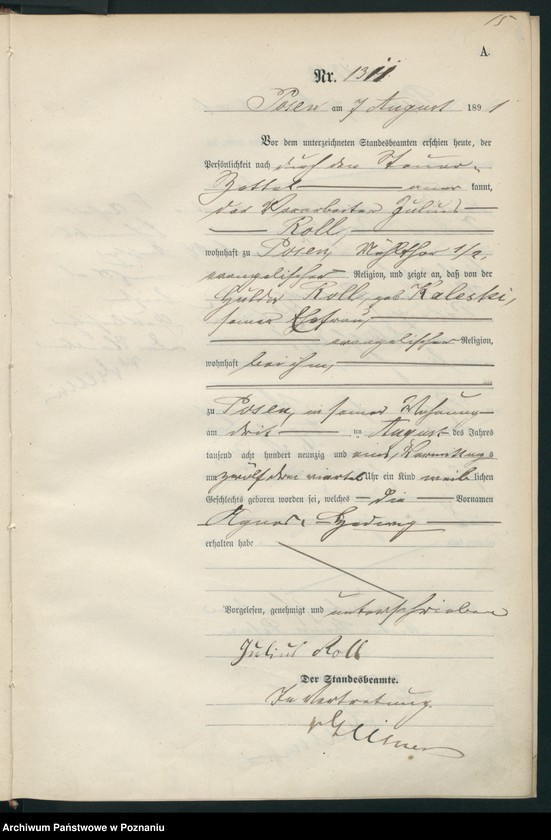 15
A.
Nr. 1311
Posen am 7 August 1891
Vor dem unterzeichneten Standesbeamten erschien heute, der
Persönlichkeit nach durch den Steuer-
Zettel kannt,
der Vorarbeiter Julius
Roll,
wohnhaft zu Posen, Mühlthor 1/2,
evangelischer Religion, und zeigte an, daß von der
Hulda Roll, geb. Kaleski,
seiner Ehefrau,
evangelischer Religion,
wohnhaft bei ihm,
zu Posen, in seiner Wohnung
am August des Jahres
tausend acht hundert neunzig und eins, Vormittags
um zwölf drei viertel Uhr ein Kind weiblichen
Geschlechts geboren worden sei, welches die Vornamen
Agnes, Hedwig
erhalten habe
Vorgelesen, genehmigt und unterschrieben
Julius Roll
Der Standesbeamte.
In Vertretung.
Archiwum Państwowe w Poznaniu